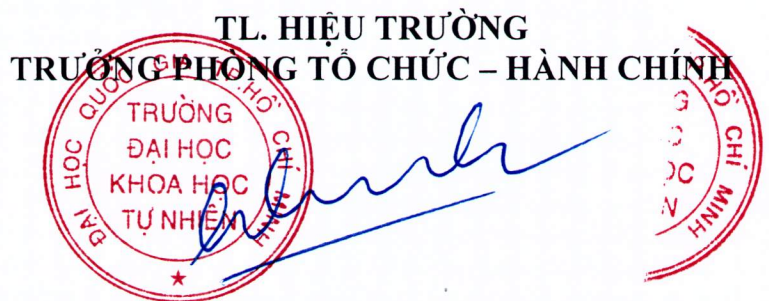 TL. HIỆU TRƯỜNG
TRƯỞNG PHÒNG TỔ CHỨC – HÀNH CHÍNH
ĐẠI HỌC QUỐC GIA TP.HỒ CHÍ MINH
TRƯỜNG
ĐẠI HỌC
KHOA HỌC
TỰ NHIÊN
HỒ CHÍ MINH
G
C
ỌC
N